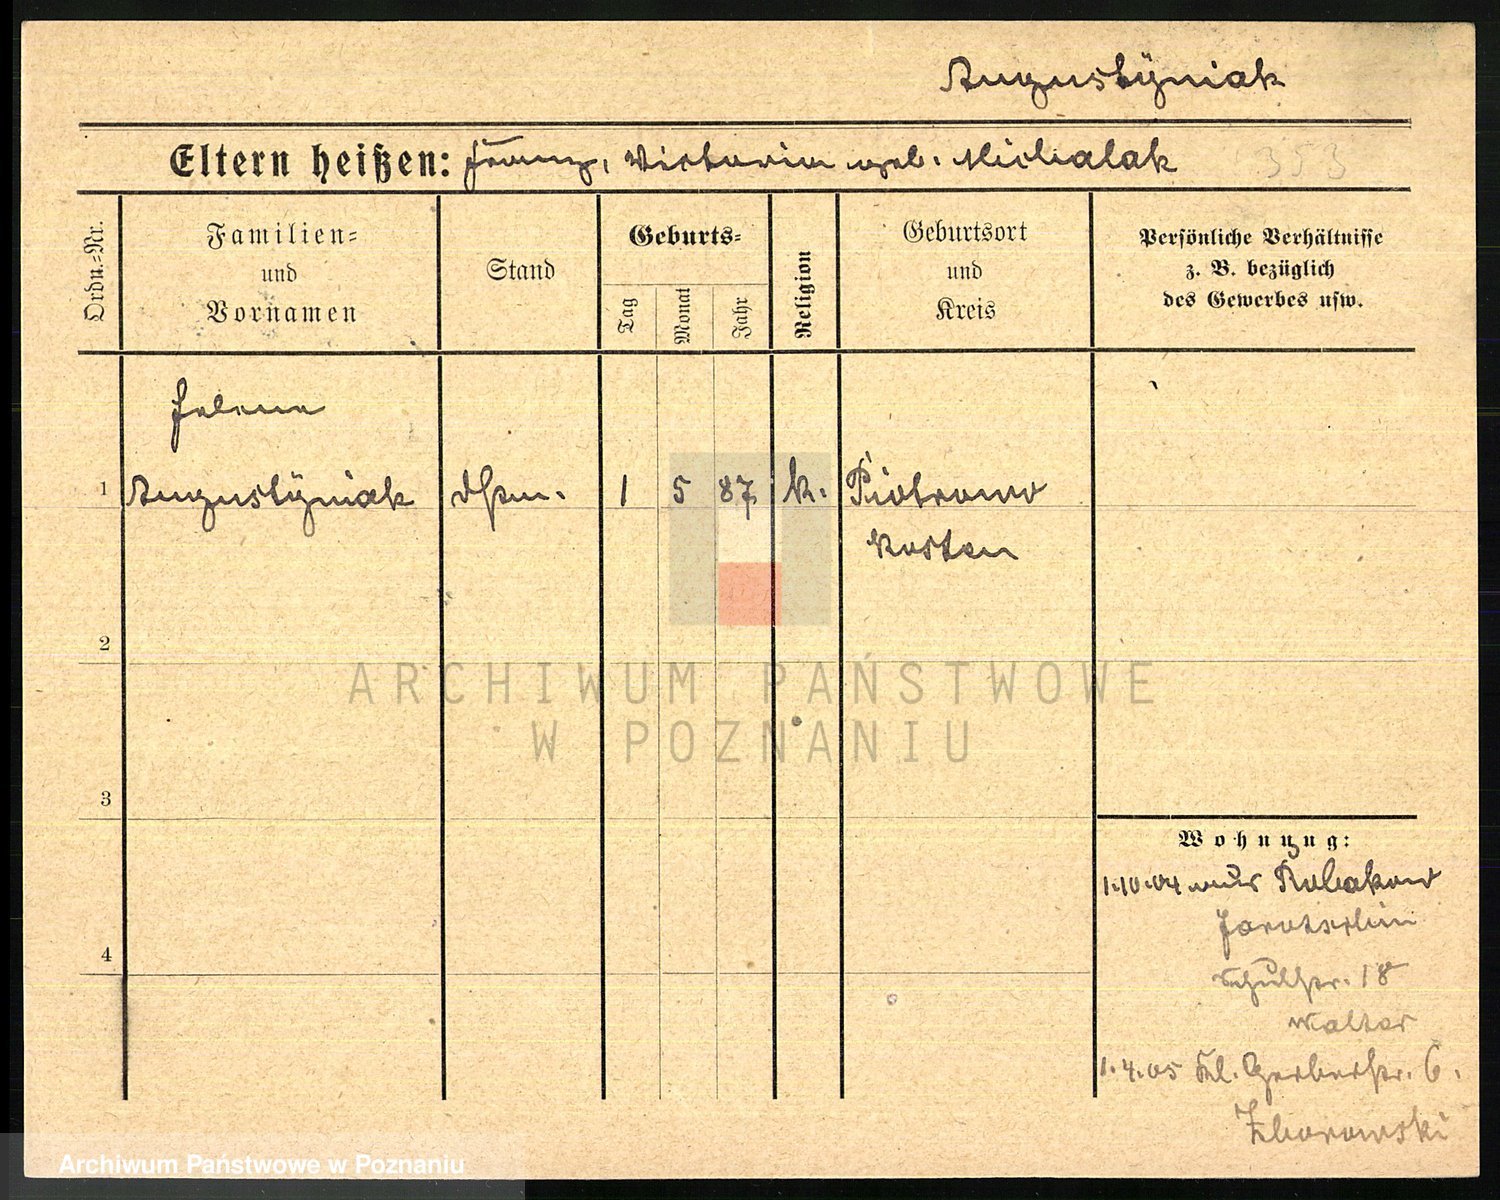 Augustÿniak
Eltern heißen: Franz, Victoria geb. Michalak 353
Ordn.=Nr.
Familien=
und
Vornamen
Stand
Geburts=
Tag
Monat
Jahr
Religion
Geburtsort
und
Kreis
Persönliche Verhältnisse
z. B. bezüglich
des Gewerbes usw.
Helene
1 Augustÿniak 1 5 87 k. Piotrowo
Kosten
2
3
4
Wohnung:
1.10.04 aus Robakow
Jarotschin
Schulstr. 18
Walter
1.4.05 Kl. Gerberstr. 6.
Zborowski
ARCHIWUM PAŃSTWOWE
W POZNANIU
Archiwum Państwowe w Poznaniu